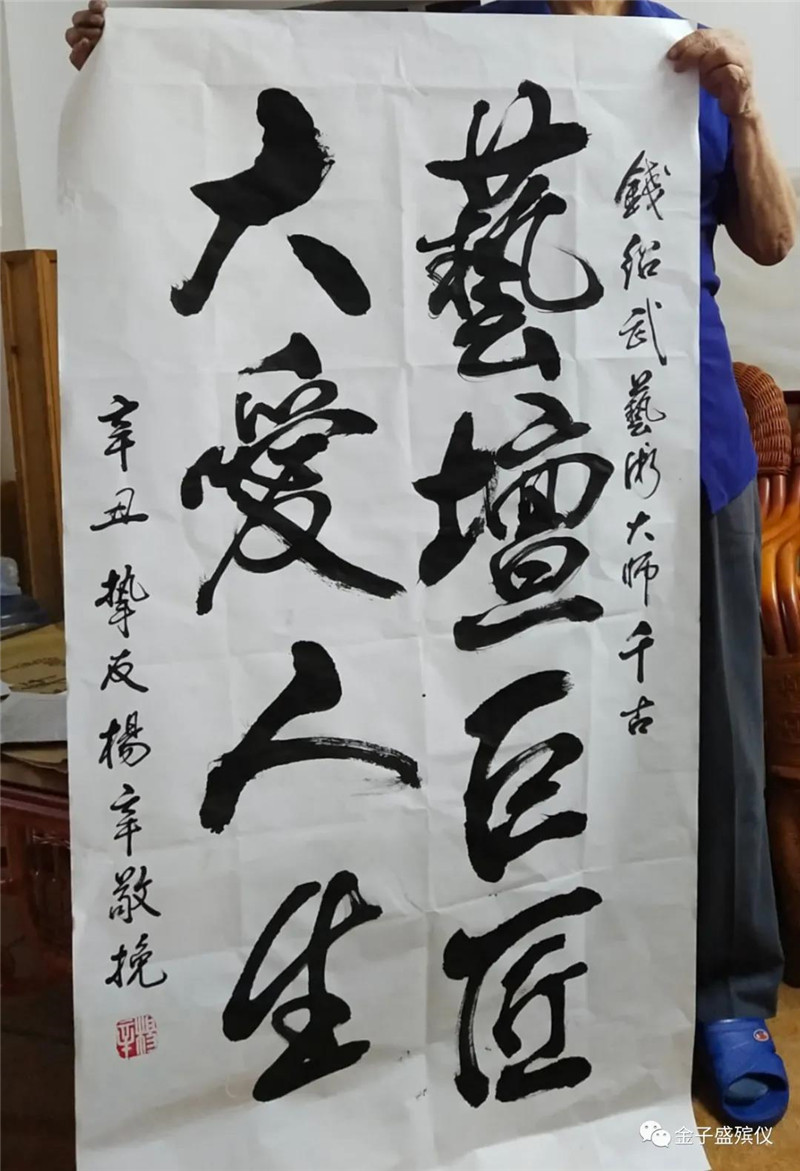 錢紹武藝術大师千古
藝壇巨匠
大愛人生
辛丑 摯友楊辛敬挽
楊辛
金子盛殡仪